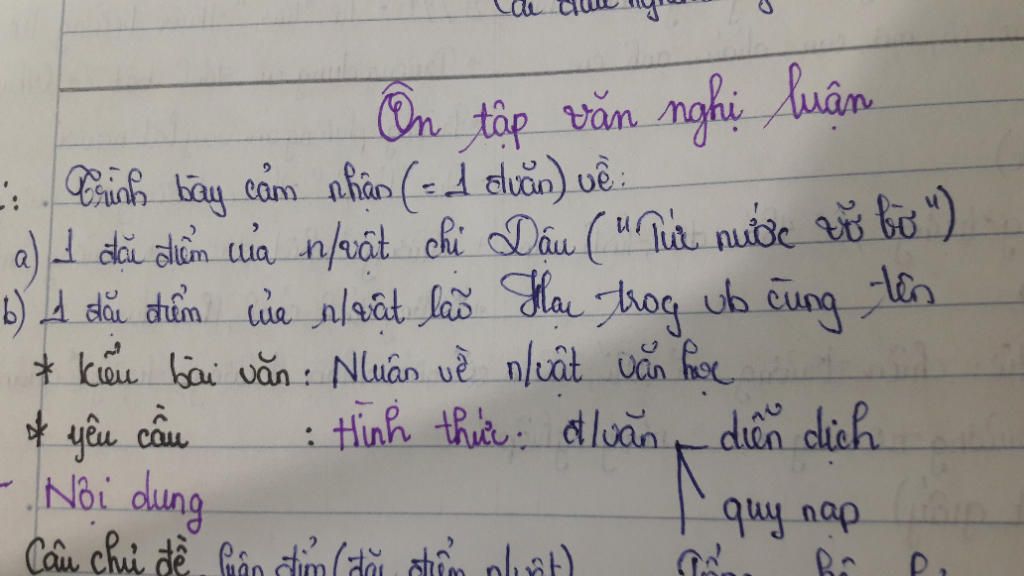 Ôn tập văn nghị luận
Trình bày cảm nhận (= 1 đvăn) về:
a) 1 đặc điểm của n/vật chị Dậu ("Tức nước vỡ bờ")
b) 1 đặc điểm của n/vật lão Hạc trog vb cùng tên
* kiểu bài văn: Nluận về n/vật văn học
* yêu cầu : Hình thức: đ/văn diễn dịch
- Nội dung quy nạp
Câu chủ đề luận điểm (đặc điểm n/vật)